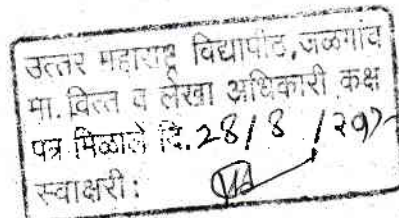 उत्तर महाराष्ट्र विद्यापीठ, जळगांव
मा. वित्त व लेखा अधिकारी कक्ष
पत्र मिळाले दि. 28/8/
स्वाक्षरी: